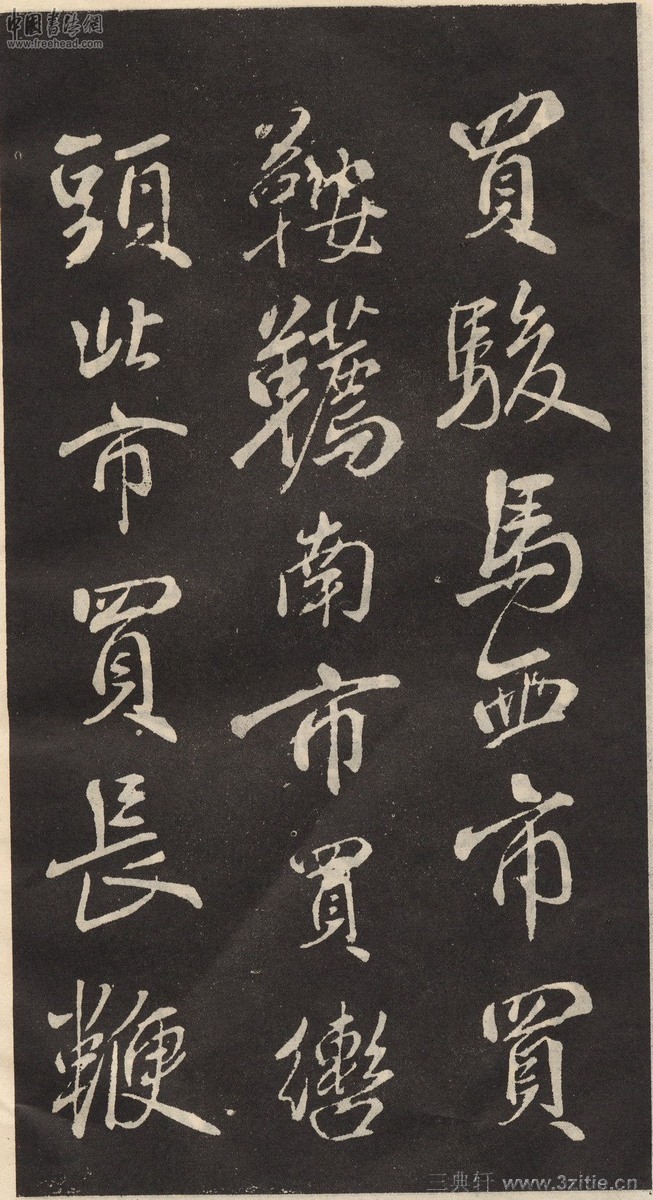 中國書法網
www.freehead.com
買駿馬西市買
鞍韉南市買轡
頭北市買長鞭
三典轩 www.3zitie.cn